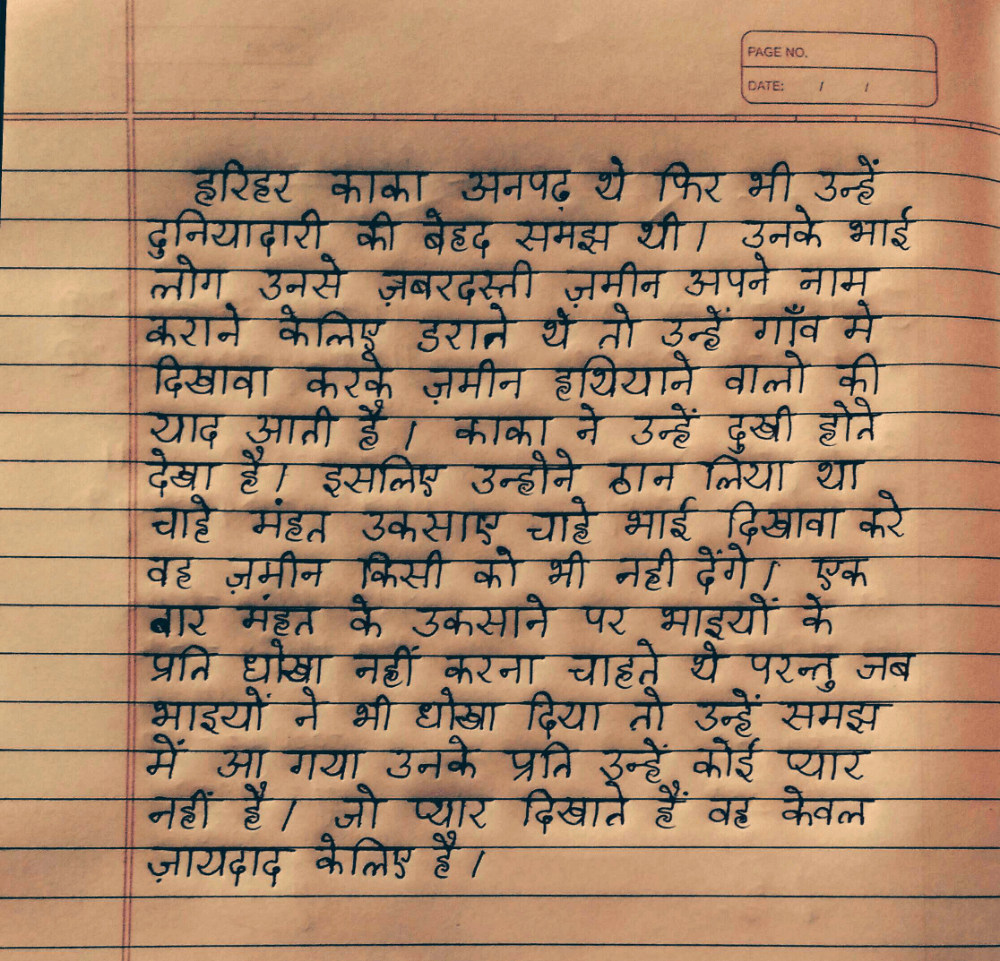 PAGE NO.
DATE: / /
हरिहर काका अनपढ़ थे फिर भी उन्हें
दुनियादारी की बेहद समझ थी। उनके भाई
लोग उनसे ज़बरदस्ती ज़मीन अपने नाम
कराने केलिए डराते थे तो उन्हें गाँव मे
दिखावा करके ज़मीन हथियाने वालो की
याद आती है। काका ने उन्हें दुखी होते
देखा है। इसलिए उन्होने ठान लिया था
चाहे मंहत उकसाए चाहे भाई दिखावा करे
वह ज़मीन किसी को भी नही देंगे। एक
बार मंहत के उकसाने पर भाइयों के
प्रति धोखा नहीं करना चाहते थे परन्तु जब
भाइयों ने भी धोखा दिया तो उन्हें समझ
में आ गया उनके प्रति उन्हें कोई प्यार
नहीं है। जो प्यार दिखाते हैं वह केवल
ज़ायदाद केलिए है।